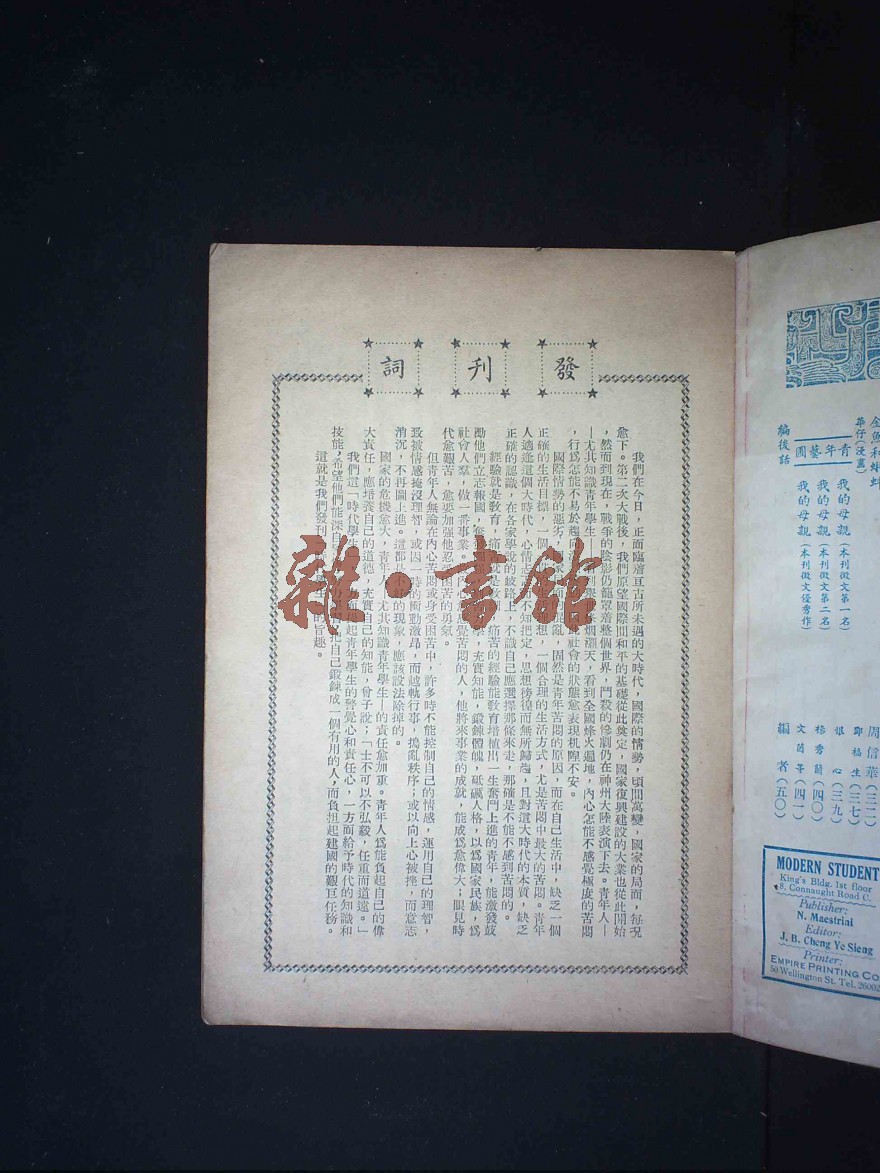 發刊詞
我們在今日，正面臨着亘古所未遇的大時代，國際的情勢，頃間萬變，國家的局面，每況
愈下。第二次大戰後，我們原望國際間和平的基礎從此奠定，國家復興建設的大業也從此開始
，然而到現在，戰爭的陰影仍籠罩着整個世界，鬥殺的慘劇仍在神州大陸表演下去。青年人—
—尤其知識青年學生——看到學烟瀰天，看到全國烽火遍地，內心怎能不感覺極度的苦悶
，行爲怎能不易於趨向社會的狀態愈表現杌隉不安。
國際情勢的惡劣，亂，固然是青年苦悶的原因，而在自己生活中，缺乏一個
正確的生活目標，一個想，一個合理的生活方式，尤是苦悶中最大的苦悶。青年
人適逢這個大時代，心情志不知把定，思想徬徨而無所歸趨，且對這大時代的本質，缺乏
正確的認識，在各家學說的歧路上，不識自己應選擇那條來走，那確是不能不感到苦悶的。
經驗就是教育，痛苦就是教，痛苦的經驗能教育培植出一生奮鬥上進的青年，能激發鼓
勵他們立志報國，奮學，充實知能，鍛鍊體魄，砥礪人格，以爲國家民族，爲
社會人羣，做一番事業。內心愈感覺苦悶的人，他將來事業的成就，能成爲愈偉大；眼見時
代愈艱苦，愈要加強他忍苦的勇氣。
但青年人無論在內心苦悶或身受困苦中，許多時不能控制自己的情感，運用自己的理智，
致被情感掩沒理智，或因一時的衝動激昂，而越軌行事，搗亂秩序；或以向上心被挫，而意志
消沉，不再圖上進。這都是不好的現象，應該設法除掉的。
國家的危機愈大，青年人尤其知識青年學生—的責任愈加重。青年人爲能負起自己的偉
大責任，應培養自己的道德，充實自己的知能，曾子說；「士不可以不弘毅，任重而道遠。」
我們這「時代學生」起青年學生的警覺心和責任心，一方面給予時代的知識和
技能，希望他們能深自把自己鍛鍊成一個有用的人，而負担起建國的艱巨任務。
這就是我們發刊學生的旨趣。
雜·書館
金魚和蝌蚪
華仔（漫畫） 周信華（三二）
青年藝園
我的母親（本刊徵文第一名） 鄧福生（三七）
我的母親（本刊徵文第二名） 銀心（三九）
我的母親（本刊徵文優秀作） 楊秀蘭（四〇）
文茵等（四一）
編後話 編者（五〇）
MODERN STUDENT
King's Bldg. 1st floor
8, Connaught Road C.
Publisher:
N. Maestrini
Editor:
J. B. Cheng Ye Sieng
Printer:
EMPIRE PRINTING CO
50 Wellington St. Tel. 26002